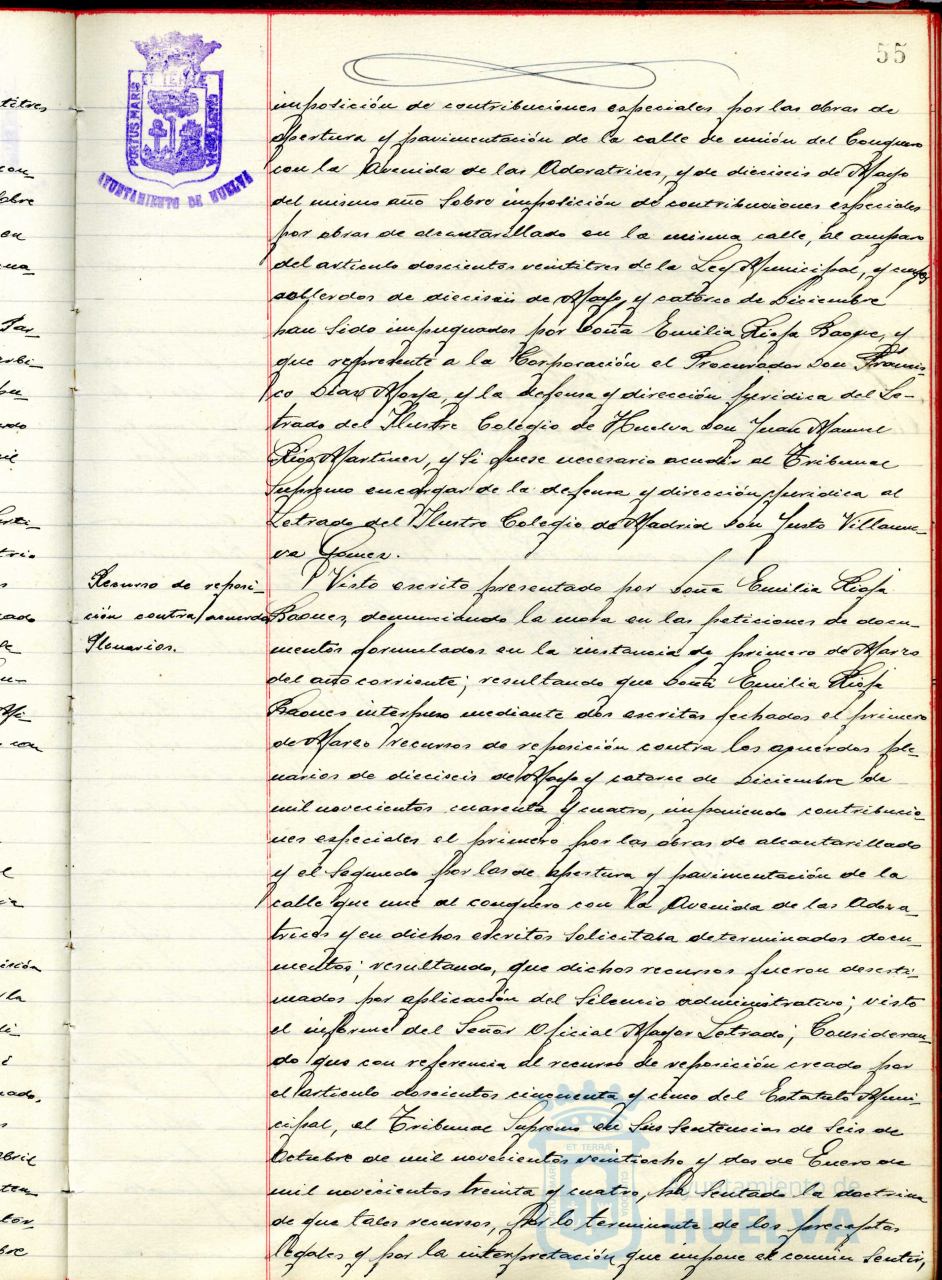 55
PORTUS MARIS
ET TERRÆ
AYUNTAMIENTO DE HUELVA
imposición de contribuciones especiales por las obras de
apertura y pavimentación de la calle de unión del Conquero
con la Avenida de las Adoratrices, y de dieciseis de Mayo
del mismo año sobre imposición de contribuciones especiales
por obras de alcantarillado en la misma calle, al amparo
del articulo doscientos veintitres de la Ley Municipal, y cuyos
acuerdos de dieciseis de Mayo, y catorce de Diciembre
han sido impugnados por Doña Emilia Rioja Baques, y
que represente a la Corporación el Procurador Don Francis-
co Diaz Moya, y la defensa y dirección juridica del Le-
trado del Ilustre Colegio de Huelva Don Juan Manuel
Rioz Martinez, y si fuese necesario acudir al Tribunal
Supremo encargar de la defensa y dirección juridica al
Letrado del Ilustre Colegio de Madrid Don Justo Villanue-
va Gomez.
Recurso de reposi-
ción contra acuerdos
Plenarios.
Visto escrito presentado por Doña Emilia Rioja
Baques, denunciando la mora en las peticiones de docu-
mentos formulados en la instancia de primero de Marzo
del año corriente; resultando que Doña Emilia Rioja
Baques interpuso mediante dos escritos fechados el primero
de Marzo recursos de reposición contra los acuerdos ple-
narios de dieciseis de Mayo y catorce de Diciembre de
mil novecientos cuarenta y cuatro, imponiendo contribucio-
nes especiales el primero por las obras de alcantarillado
y el segundo por las de apertura y pavimentación de la
calle que une al conquero con la Avenida de las Adora-
trices y en dichos escritos solicitaba determinados docu-
mentos; resultando, que dichos recursos fueron desesti-
mados por aplicación del Silencio administrativo; visto
el informe del Señor Oficial Mayor Letrado; Consideran-
do que con referencia al recurso de reposición creado por
el articulo doscientos cincuenta y cinco del Estatuto Muni-
cipal, el Tribunal Supremo en sus Sentencias de seis de
Octubre de mil novecientos veintiocho y dos de Enero de
mil novecientos treinta y cuatro, ha sentado la doctrina
de que tales recursos, por lo terminante de los preceptos
legales y por la interpretación que impone el común sentir,
Ayuntamiento de
HUELVA